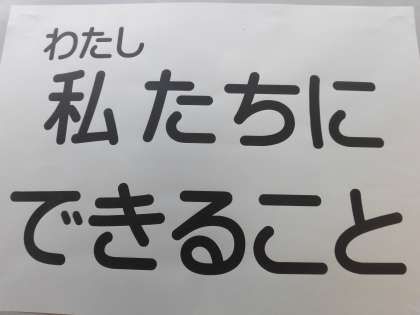 わたし
私たちに
できること